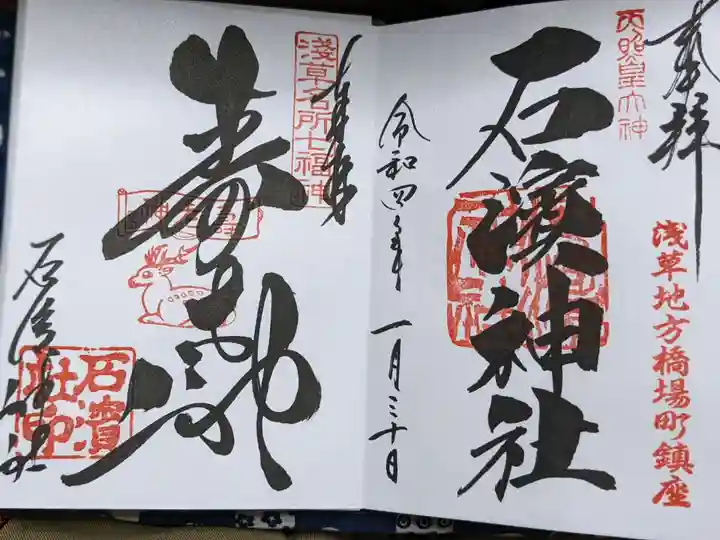 奉拝
天照皇大神
石濱神社
浅草地方橋場町鎮座
令和四年
一月三十日
奉拝
淺草名所七福神
寿老神
石濱神社
石濱社印